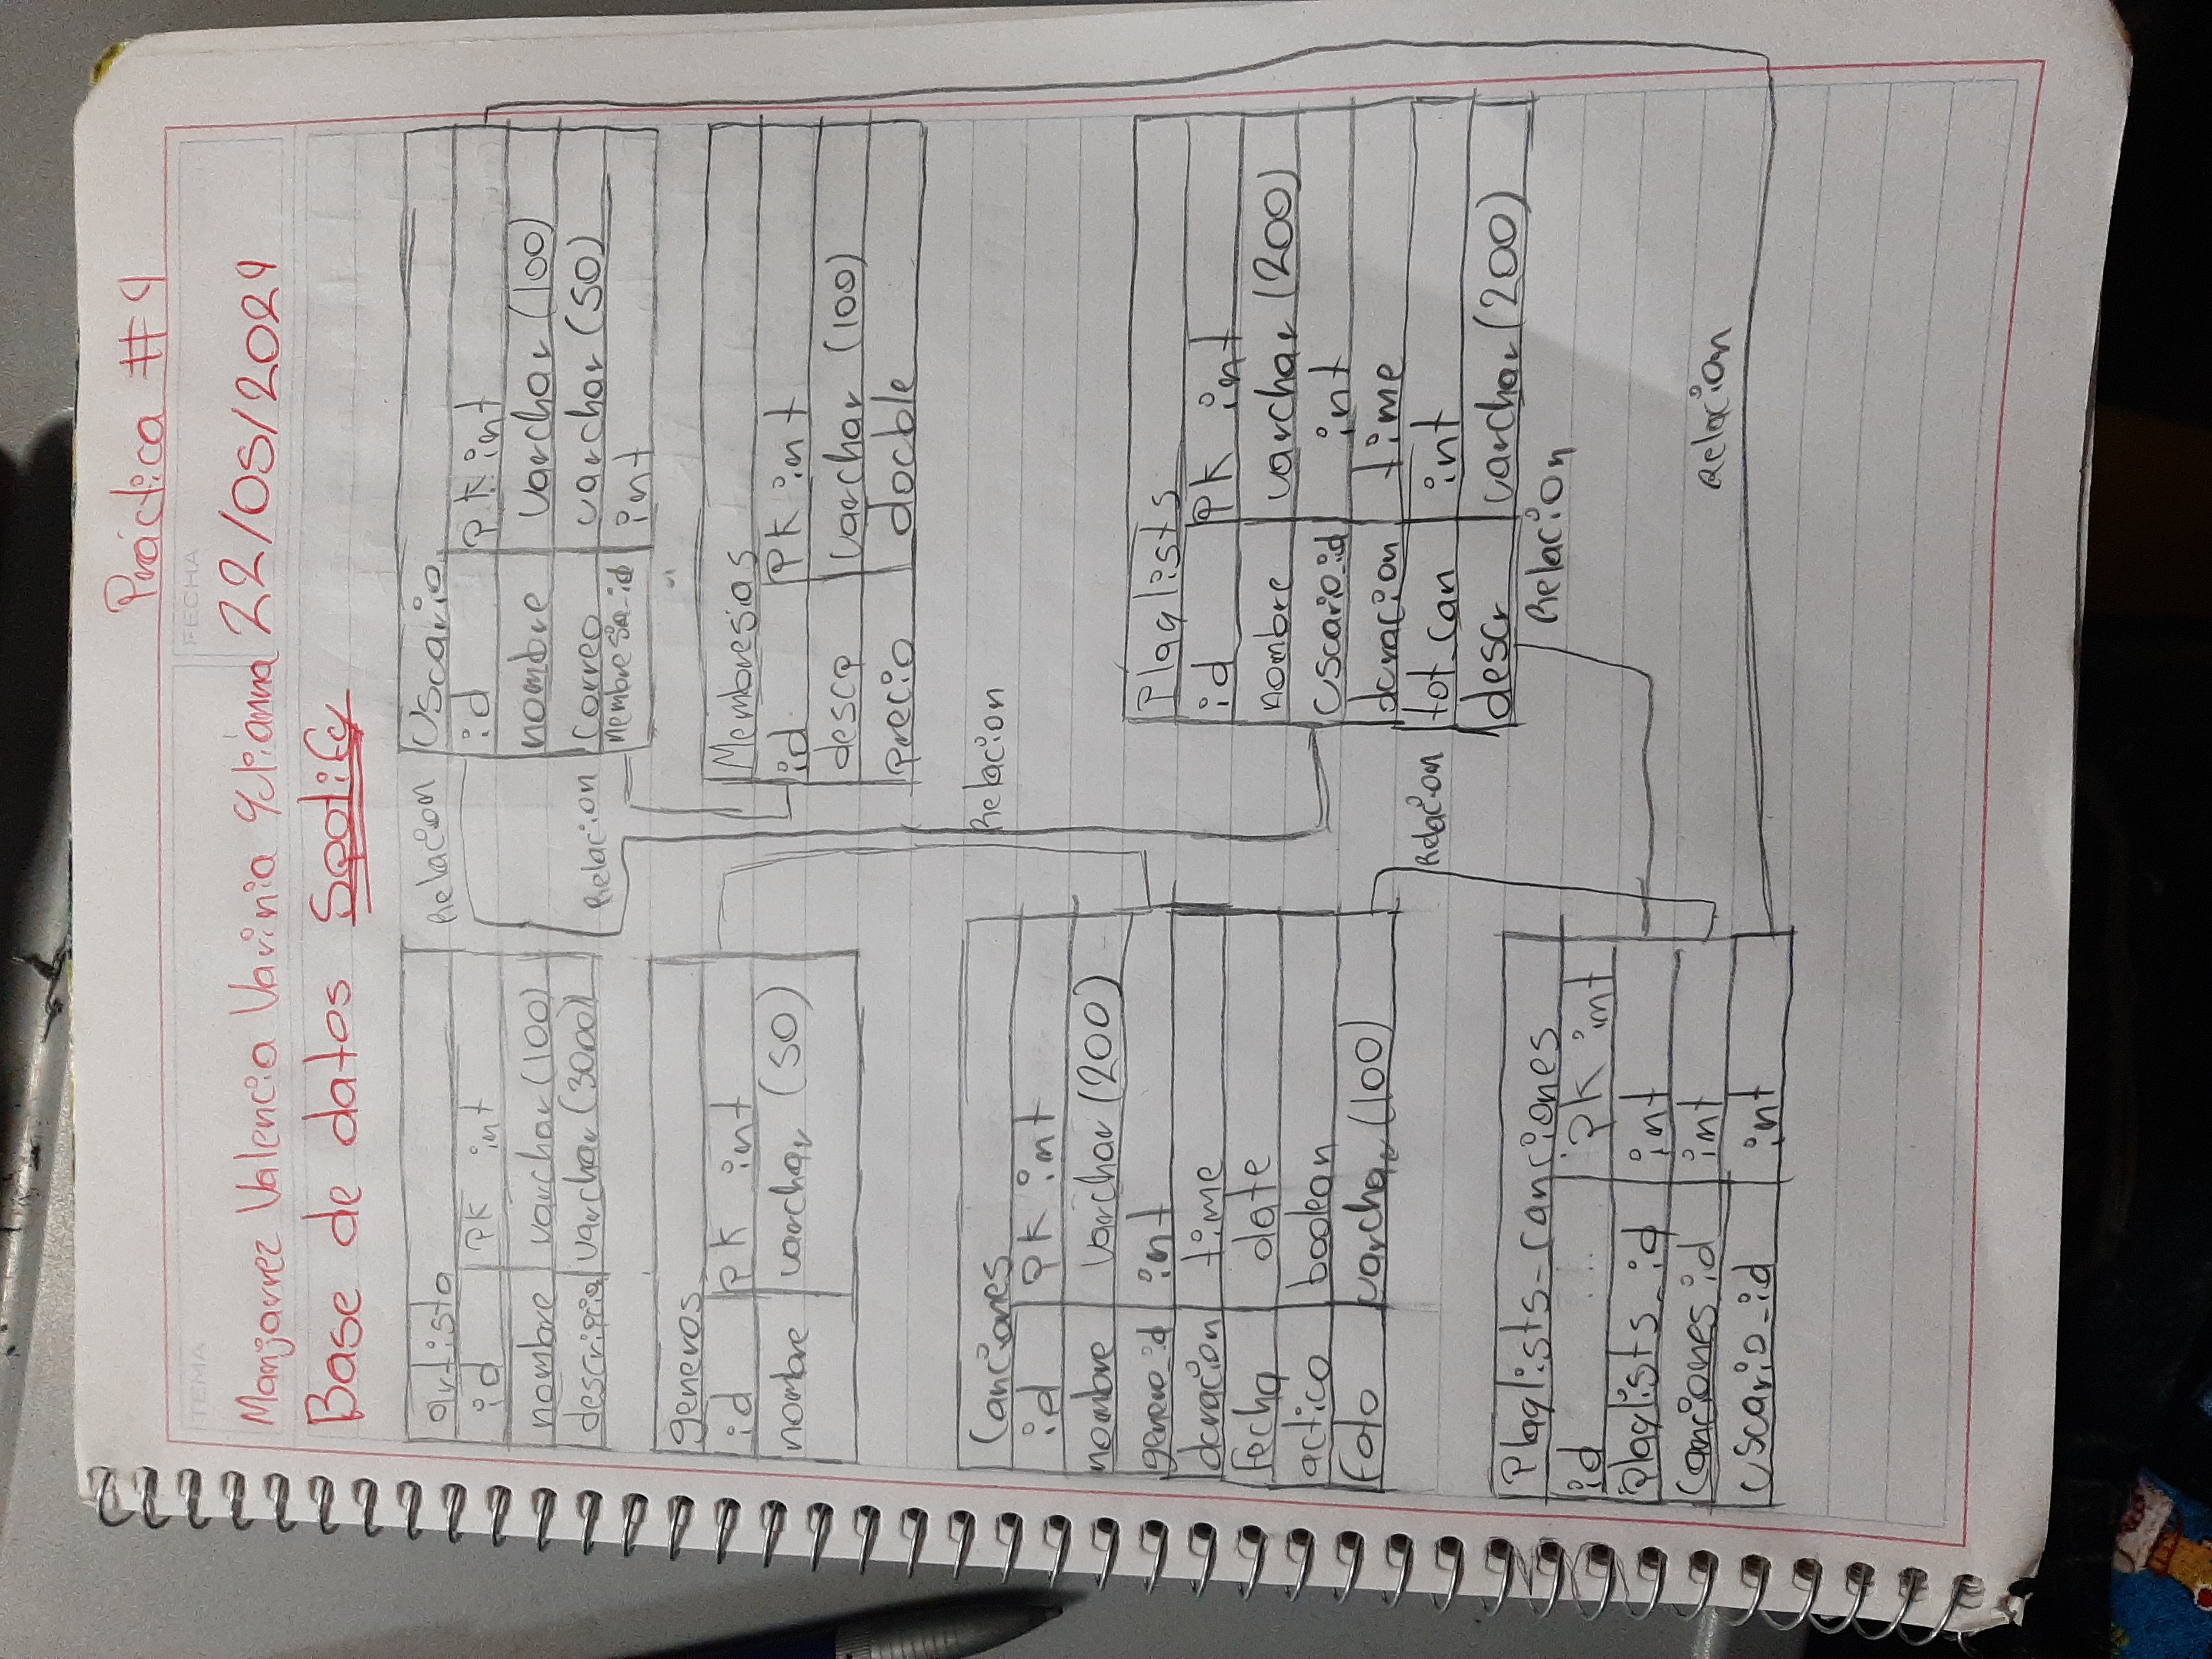 Práctica #4
TEMA
FECHA
Manjarrez Valencia Varinia Yulianna 22/05/2024
Base de datos Spotify
artista
id PK int
nombre varchar (100)
descripcia varchar (3000)
Relacion
Usuario
id PK int
nombre varchar (100)
correo varchar (50)
membresia_id int
Relacion
generos
id PK int
nombre varchar (50)
Membresias
id PK int
descp varchar (100)
precio double
Canciones
id PK int
nombre varchar (200)
genero_id int
duracion time
fecha date
activo boolean
foto varchar (100)
Relacion
Playlists
id PK int
nombre varchar (200)
usuario_id int
duracion time
tot_can int
descr varchar (200)
Relacion
Relacion
Playlists_canciones
id PK int
Playlists_id int
canciones_id int
usuario_id int
Relacion